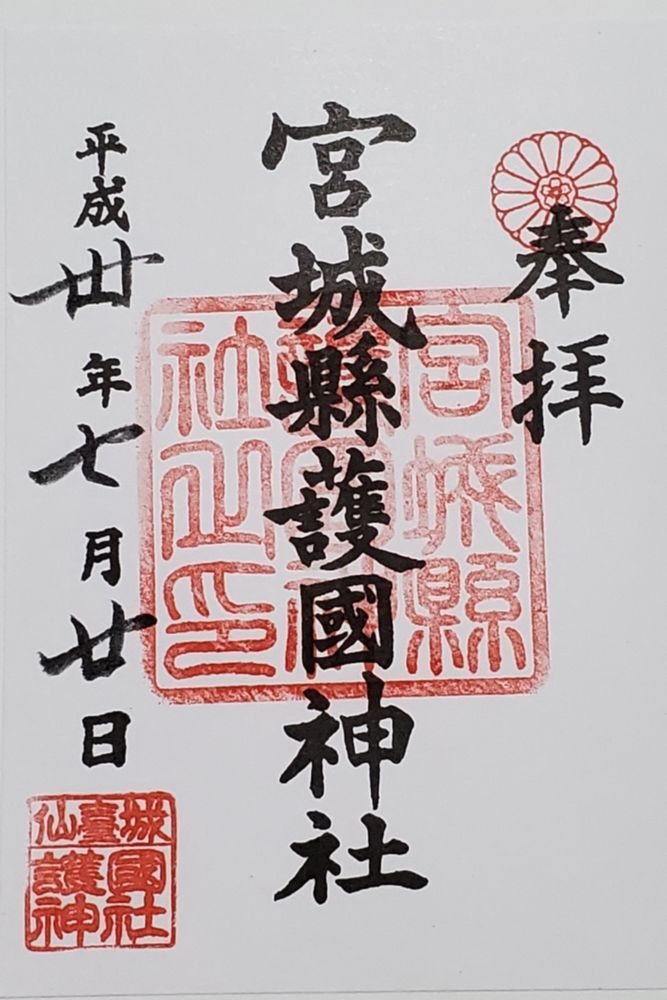 奉拝
宮城縣護國神社
宮城縣
護國神
社之印
平成丗年七月廿日
仙臺城
護國
神社